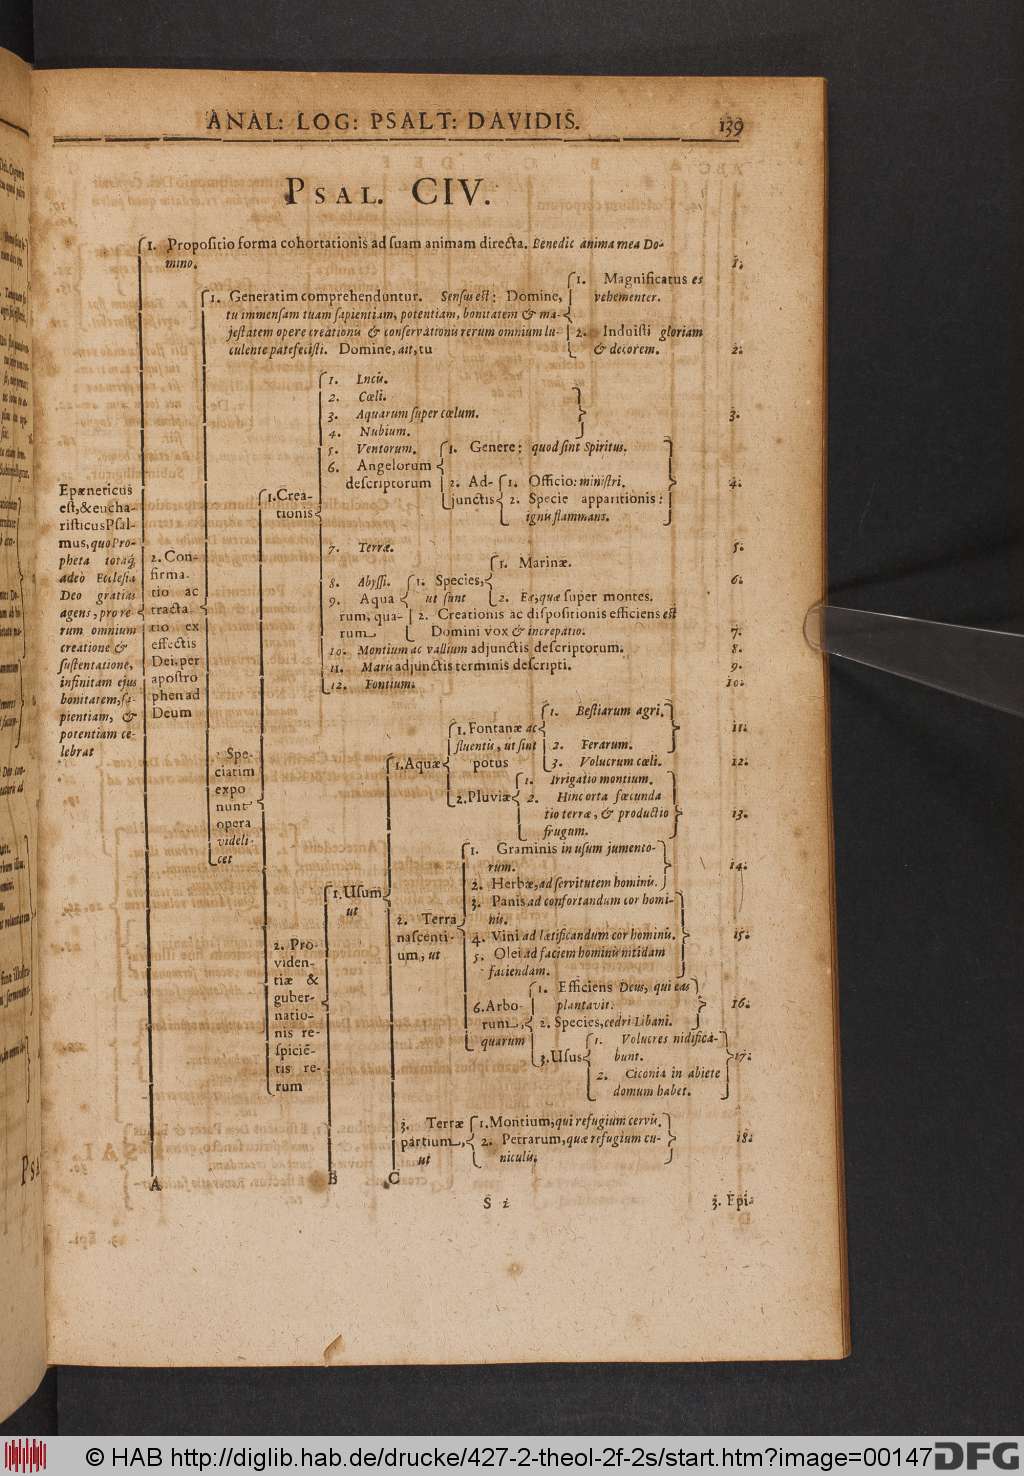 ANAL: LOG: PSALT: DAVIDIS. 139
PSAL. CIV.
1. Propositio forma cohortationis ad suam animam directa. Benedic anima mea Do-
mino. 1.
1. Generatim comprehenduntur. Sensus est: Domine,
tu immensam tuam sapientiam, potentiam, bonitatem & ma-
jestatem opere creationis & conservationis rerum omnium lu-
culente patefecisti. Domine, ait, tu
1. Magnificatus es
vehementer.
2. Induisti gloriam
& decorem. 2.
1. Lucis.
2. Cœli.
3. Aquarum super cœlum. 3.
4. Nubium.
5. Ventorum.
6. Angelorum
descriptorum
1. Genere: quod sint Spiritus.
2. Ad-
junctis
1. Officio: ministri. 4.
2. Specie apparitionis:
ignis flammans.
Epæneticus
est, & eucha-
risticus Psal-
mus, quo Pro-
pheta totaq́;
adeò Ecclesia
Deo gratias
agens, pro re-
rum omnium
creatione &
sustentatione,
infinitam ejus
bonitatem, sa-
pientiam, &
potentiam ce-
lebrat
2. Con-
firma-
tio ac
tracta-
tio ex
effectis
Dei, per
apostro
phen ad
Deum
1. Crea-
tionis
7. Terræ. 5.
8. Abyssi.
9. Aqua
rum, qua-
rum
1. Species,
ut sunt
1. Marinæ.
2. Eæ, quæ super montes. 6.
2. Creationis ac dispositionis efficiens est
Domini vox & increpatio. 7.
10. Montium ac vallium adjunctis descriptorum. 8.
11. Maris adjunctis terminis descripti. 9.
12. Fontium. 10.
2. Spe-
ciatim
expo
nunt
opera
videli-
cet
1. Aquæ
1. Fontanæ ac
fluentis, ut sint
potus
1. Bestiarum agri. 11.
2. Ferarum.
3. Volucrum cœli. 12.
2. Pluviæ
1. Irrigatio montium.
2. Hinc orta fœcunda
tio terræ, & productio
frugum. 13.
2. Pro
viden-
tiæ &
guber-
natio-
nis re-
spiciẽ-
tis re-
rum
1. Usum
ut
2. Terra
nascenti-
um, ut
1. Graminis in usum jumento-
rum. 14.
2. Herbæ, ad servitutem hominis.
3. Panis ad confortandum cor homi-
nis.
4. Vini ad lætificandum cor hominis. 15.
5. Olei ad faciem hominis nitidam
faciendam.
6. Arbo-
rum,
quarum
1. Efficiens Deus, qui eas
plantavit. 16.
2. Species, cedri Libani.
3. Usus
1. Volucres nidifica-
bunt. 17.
2. Ciconia in abiete
domum habet.
3. Terræ
partium,
ut
1. Montium, qui refugium cervis.
2. Petrarum, quæ refugium cu-
niculis. 18.
A B C
S 2 3. Epi-
© HAB http://diglib.hab.de/drucke/427-2-theol-2f-2s/start.htm?image=00147
DFG